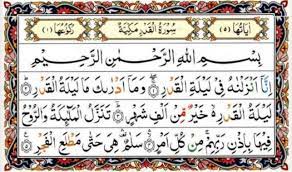 اٰیَاتُهَا (۵) سُوْرَةُ الْقَدْرِ مَكِّیَّةٌ رُكُوْعُهَا (۱)
بِسْمِ اللّٰهِ الرَّحْمٰنِ الرَّحِیْمِ
اِنَّاۤ اَنْزَلْنٰهُ فِیْ لَیْلَةِ الْقَدْرِ ۚ وَ مَاۤ اَدْرٰىكَ مَا لَیْلَةُ الْقَدْرِ ؕ
لَیْلَةُ الْقَدْرِ خَیْرٌ مِّنْ اَلْفِ شَهْرٍ ؕ تَنَزَّلُ الْمَلٰٓىِٕكَةُ وَ الرُّوْحُ
فِیْهَا بِاِذْنِ رَبِّهِمْ ۚ مِنْ كُلِّ اَمْرٍ ۙ سَلٰمٌ ۛ هِیَ حَتّٰى مَطْلَعِ الْفَجْرِ